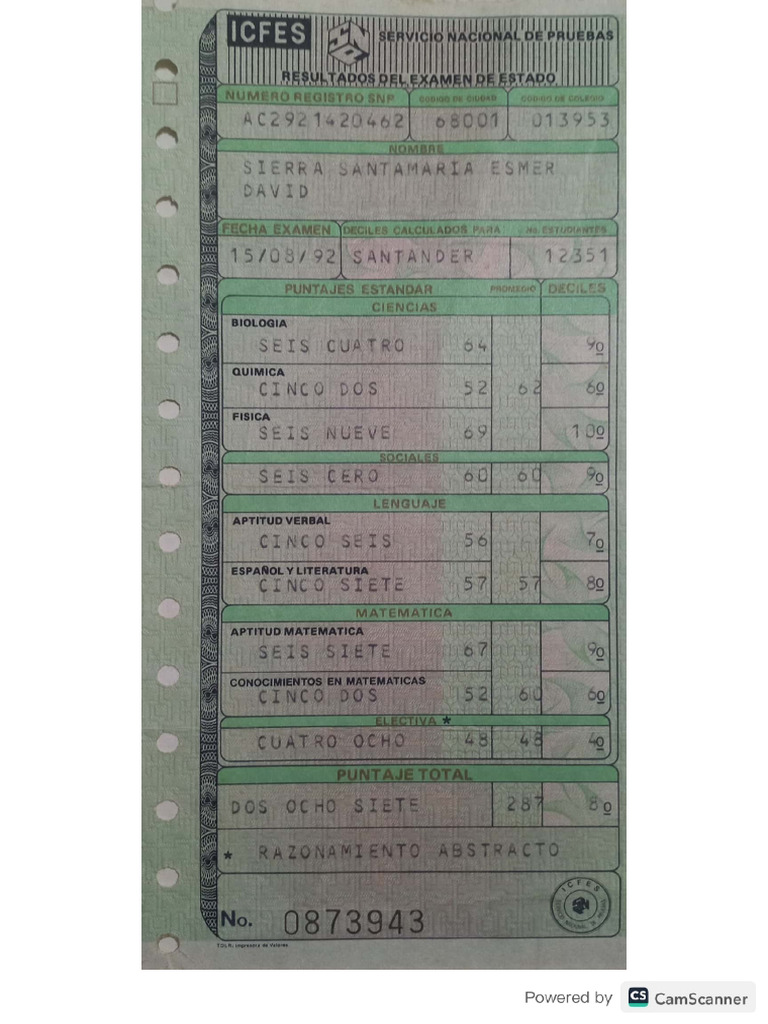 ICFES SERVICIO NACIONAL DE PRUEBAS
RESULTADOS DEL EXAMEN DE ESTADO
NUMERO REGISTRO SNP CODIGO DE CIUDAD CODIGO DE COLEGIO
AC2921420462 68001 013953
NOMBRE
SIERRA SANTAMARIA ESMER
DAVID
FECHA EXAMEN DECILES CALCULADOS PARA No. ESTUDIANTES
15/08/92 SANTANDER 12351
PUNTAJES ESTANDAR PROMEDIO DECILES
CIENCIAS
BIOLOGIA
SEIS CUATRO 64 9o
QUIMICA
CINCO DOS 52 62 6o
FISICA
SEIS NUEVE 69 10o
SOCIALES
SEIS CERO 60 60 9o
LENGUAJE
APTITUD VERBAL
CINCO SEIS 56 7o
ESPAÑOL Y LITERATURA
CINCO SIETE 57 57 8o
MATEMATICA
APTITUD MATEMATICA
SEIS SIETE 67 9o
CONOCIMIENTOS EN MATEMATICAS
CINCO DOS 52 60 6o
ELECTIVA *
CUATRO OCHO 48 48 4o
PUNTAJE TOTAL
DOS OCHO SIETE 287 8o
* RAZONAMIENTO ABSTRACTO
ICFES
No. 0873943
Powered by CS CamScanner